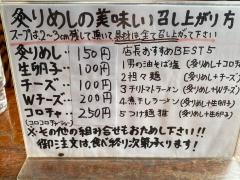 炙りめしの美味しい召し上がり方
スープは2〜3cm残して頂いて具材は全て上がって下さい
炙りめし… 150円
生卵… 100円
チーズ… 100円
Wチーズ… 200円
コロチャ… 250円
(コロコロチャーシュー)
店長おすすめBEST5
1 男の油そば塩(炙りめし+コロチャ)
2 担々麺(炙りめし+チーズ)
3 チリトマトラーメン(炙りめし+チーズ)
4 煮干しラーメン(炙りめし+生卵)
5 つけ麺(炙りめし+生卵)
※その他の組み合せもおためし下さい!!
御注文は食べ終り次第承ります!